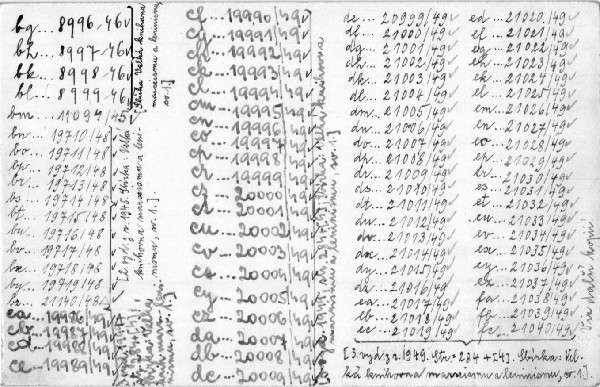 bg... 8996-46
bh... 8997-46
bk... 8998-46
bl... 8999-46
[Sbírka: Velká knihovna
marxismu a leninismu,
sv. 1.]
bm... 11094/45
bn... 19710/48
bo... 19711/48
bp... 19712/48
br... 19713/48
bs... 19714/48
bt... 19715/48
bu... 19716/48
bv... 19717/48
bx... 19718/48
by... 19719/48
bz... 21140/48
[2. vyd. z r. 1945. Sbírka: Velká
knihovna marxismu a leni-
nismu, sv. 1.]
ca... 19986/49
cb... 19987/49
cd... 19988/49
ce... 19989/49
cf... 19990/49
cg... 19991/49
19992/49
ck... 19993/49
cl... 19994/49
cm... 19995/49
cn... 19996/49
co... 19997/49
cp... 19998/49
19999/49
cs... 20000/49
ct... 20001/49
cu... 20002/49
cv... 20003/49
cx... 20004/49
cy... 20005/49
cz... 20006/49
da... 20007/49
db... 20008/49
dc... 20009/49
Velká knihovna
marxismu a leninismu, sv. 1.]
de... 20999/49
df... 21000/49
dg... 21001/49
dh... 21002/49
dk... 21003/49
dl... 21004/49
dm... 21005/49
dn... 21006/49
do... 21007/49
dp... 21008/49
dr... 21009/49
ds... 21010/49
dt... 21011/49
du... 21012/49
dv... 21013/49
dx... 21014/49
dy... 21015/49
dz... 21016/49
ea... 21017/49
eb... 21018/49
ec... 21019/49
ed... 21020/49
ef... 21021/49
eg... 21022/49
eh... 21023/49
ek... 21024/49
el... 21025/49
em... 21026/49
en... 21027/49
eo... 21028/49
ep... 21029/49
er... 21030/49
es... 21031/49
et... 21032/49
eu... 21033/49
ev... 21034/49
ex... 21035/49
ey... 21036/49
ez... 21037/49
fa... 21038/49
fb... 21039/49
fc... 21040/49
[3. vyd. z r. 1949. Str. = 284 + [4]. Sbírka: Vel-
ká knihovna marxismu a leninismu, sv. 1.]